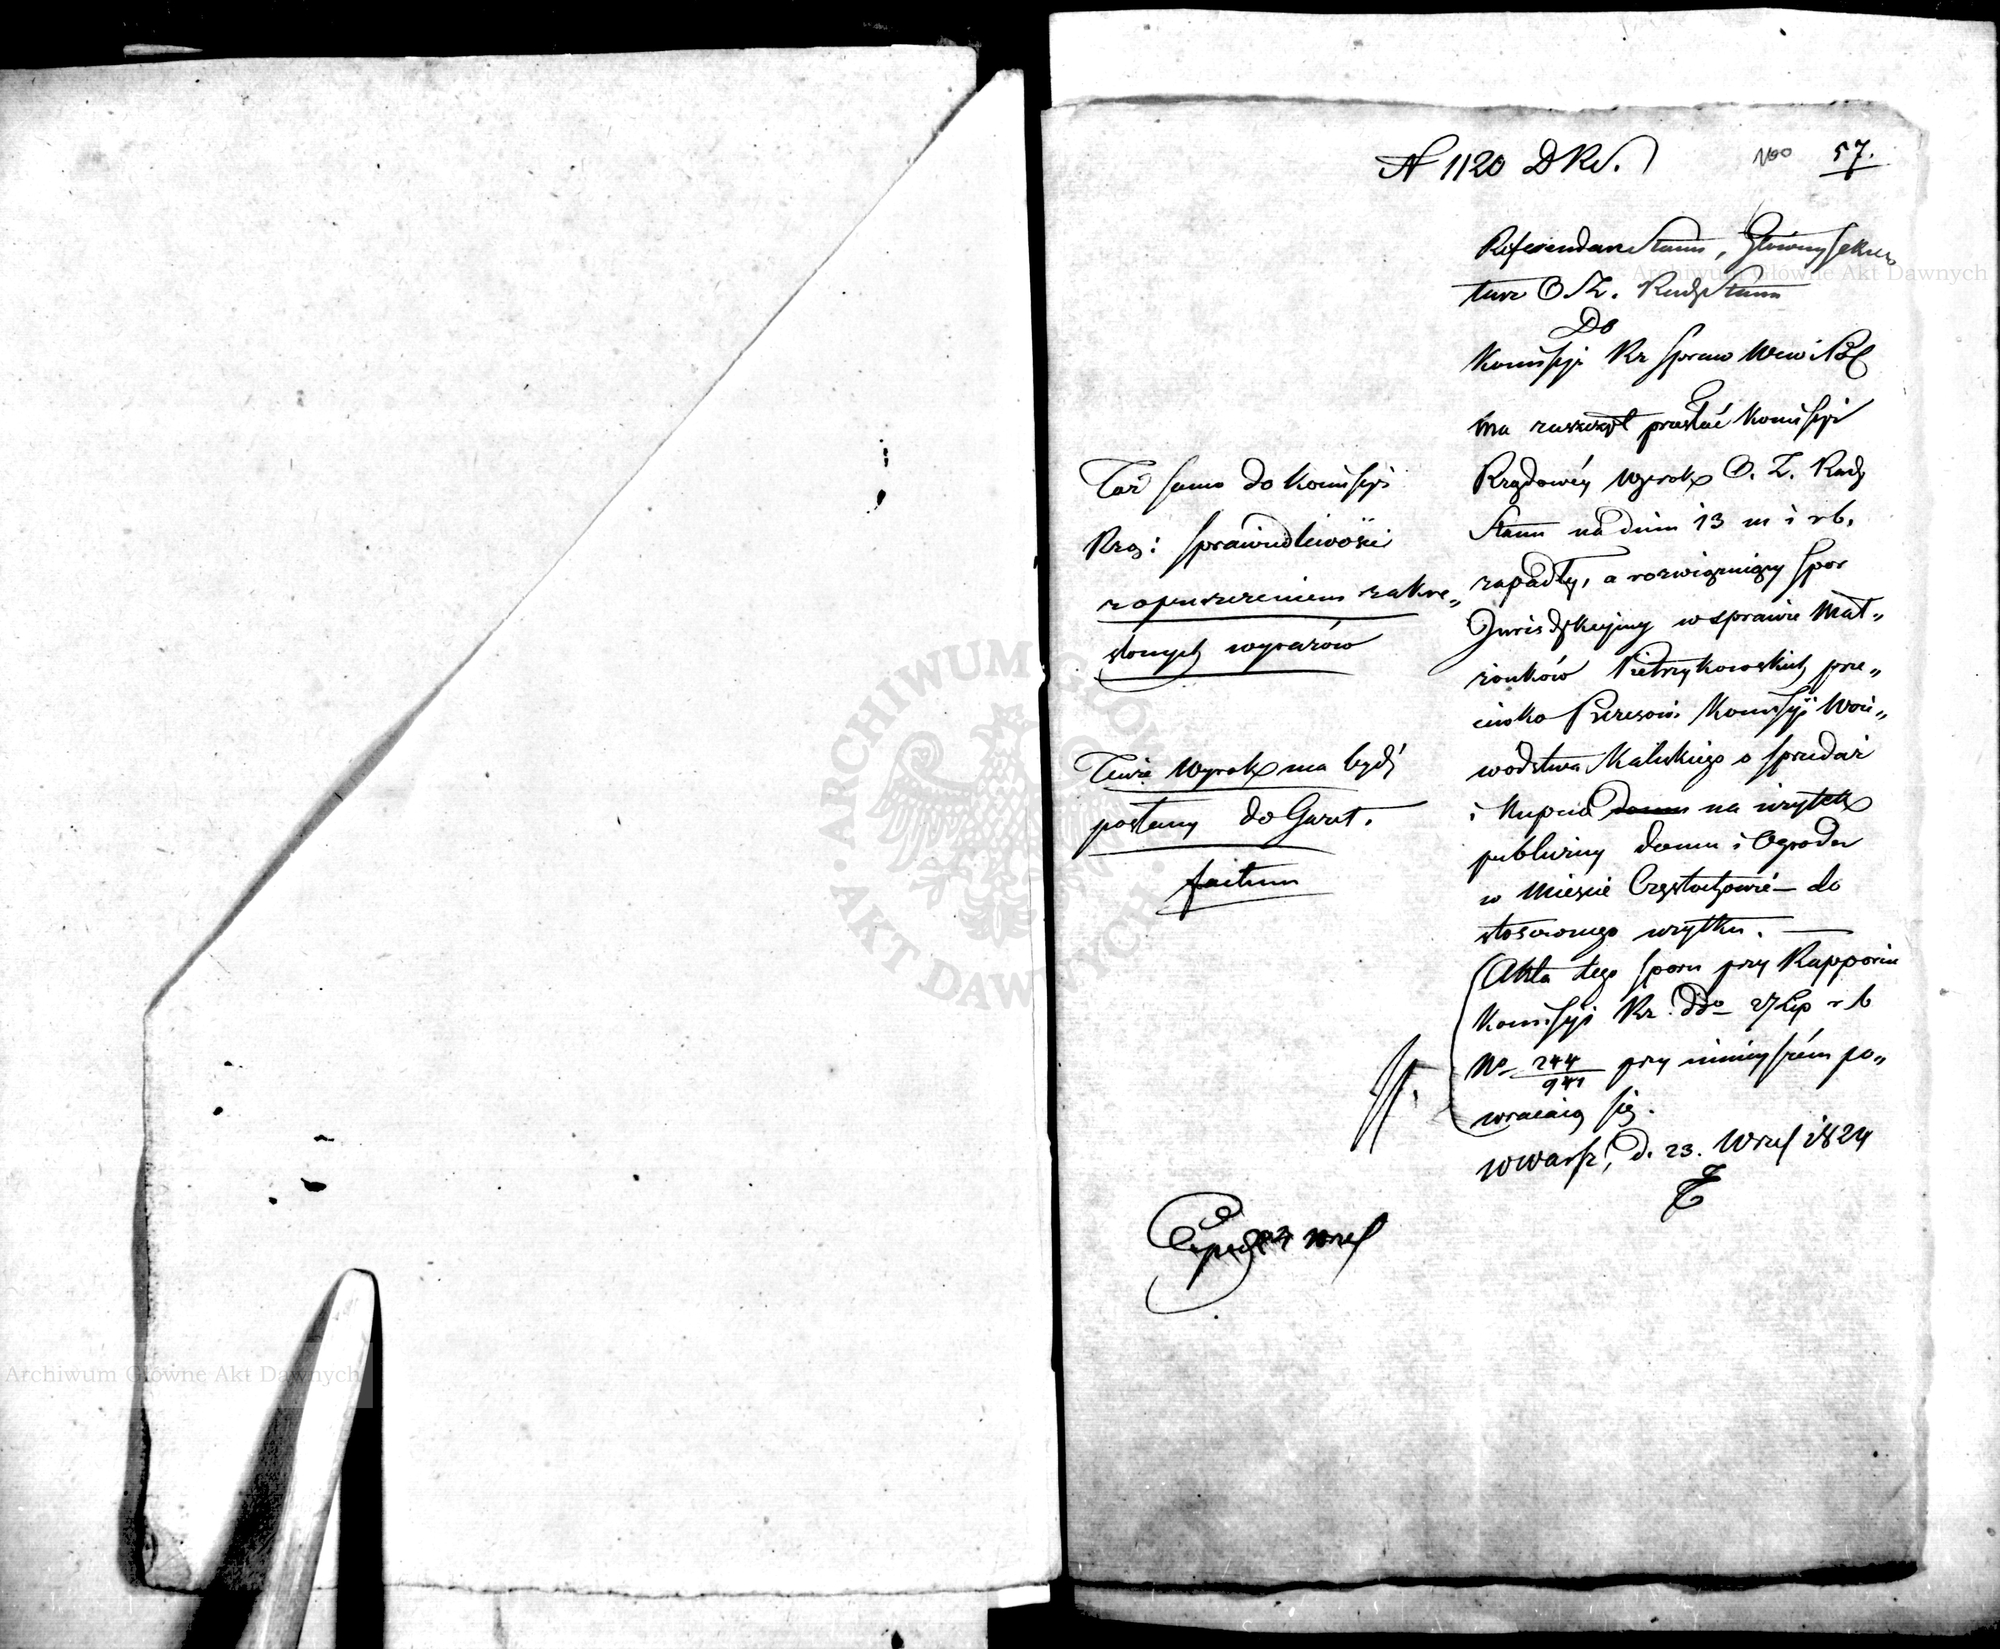 N 1120 DRS.
100
57.
Referendarz Stanu, Główny Sekre
tarz O Z. Rady Stanu
Do
Kommissyi Rz Spraw Wew i Pol
ma zaszczyt przesłać Kommissyi
Rządowéy Wyrok O. Z. Rady
Stanu na dniu 13 m i r b.
zapadły, a rozwiązuiący Spór
Jurisdykcyiny w sprawie Mał„
żonków Pietrzykowskich prze„
ciwko Prezesowi Kommissyi Woie„
wództwa Kaliskiego o sprzedaż
i kupno domu na użytek
publiczny domu i Ogrodu
w Mieście Częstochowie — do
stosownego użytku. —
(Akta tego sporu przy Rapporcie
Kommissyi Rz. ddo 27 Lip r b
No 244/941 przy ninieyszém po„
wracaią się.
w Warsz, d. 23. Wrześ 1824
Toż samo do Kommissyi
Rzą: Sprawiedliwości
z opuszczeniem zakre„
slonych wyrazów
Tenże Wyrok ma bydź
posłany do Gazet.
factum
Exped 24 Wrześ
ARCHIWUM GŁÓWNE AKT DAWNYCH
Archiwum Główne Akt Dawnych
Archiwum Główne Akt Dawnych